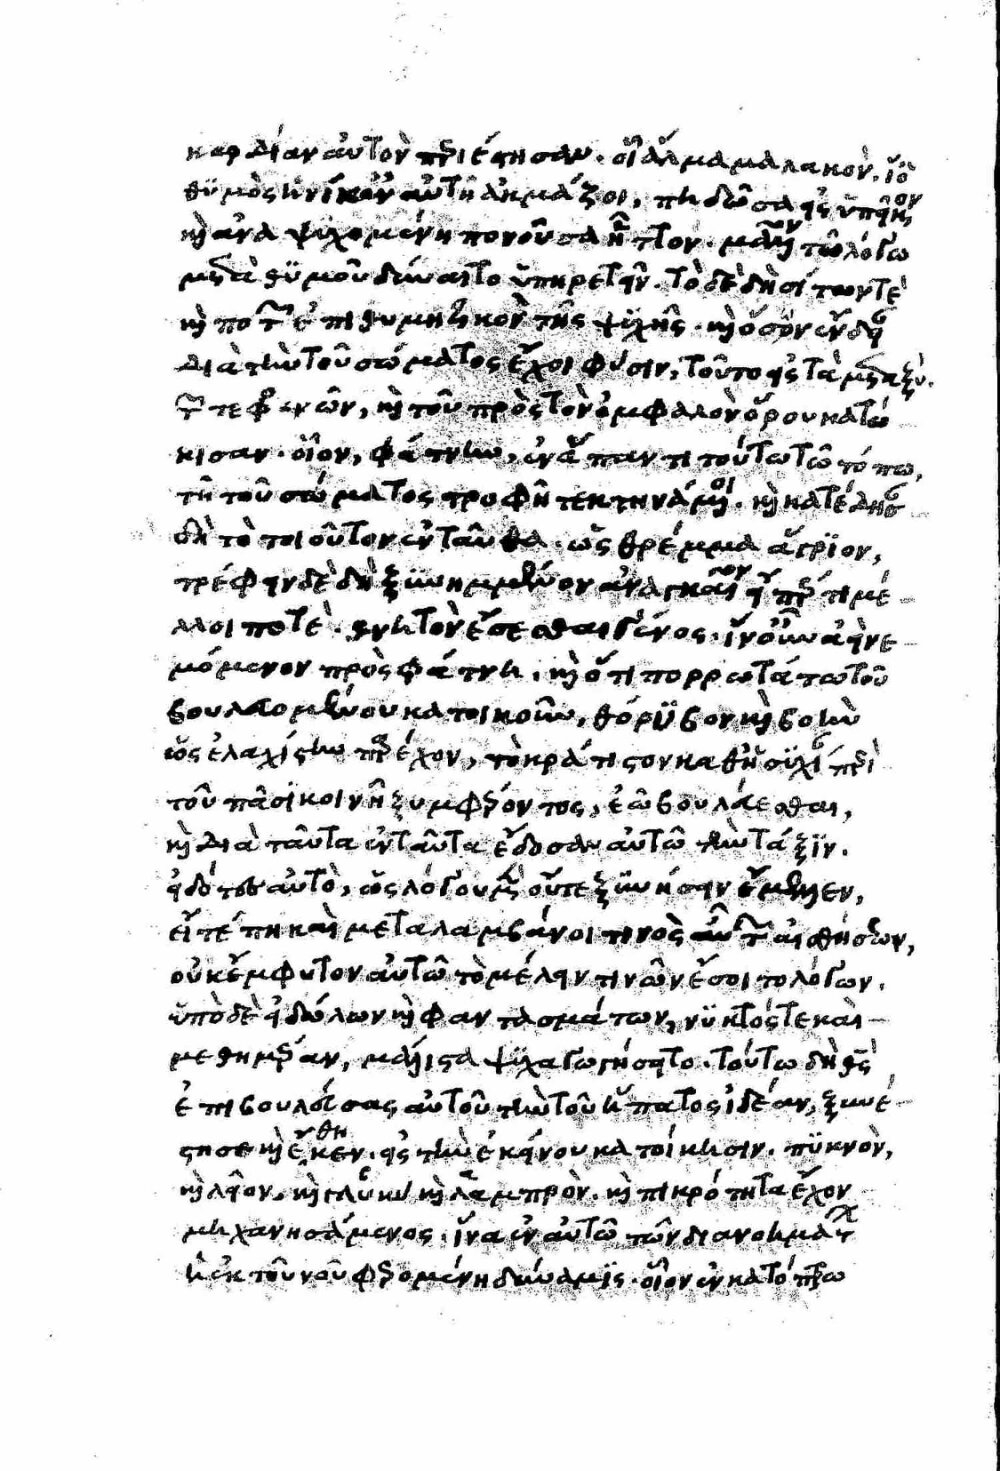 καρδίαν αὐτὸν περιέστησαν. οἷ ἅλμα μαλακὸν. ἵν' ὁ
θϋμὸς ἡνίκ' ἂν αὐτῆ ἀκμάζοι, πηδῶσα εἰς ὑπεῖκον
καὶ ἀναψυχομένη πονοῦσα ἧττον. μᾶλλον τῶ λόγω
μετὰ θϋμοῦ δύναιτο ὑπηρετεῖν. τὸ δὲ δὴ σίτων τὲ
καὶ ποτῶν ἐπιθυμητικὸν τῆς ψϋχῆς. καὶ ὅσων ἔνδειαν
διὰ τὴν τοῦ σώματος ἔχοι φύσιν, τοῦτο εἰς τὰ μεταξὺ.
τῶν τε φρενῶν, καὶ τοῦ πρὸς τὸν ὀμφαλὸν ὅρου κατώ
κισαν. οἷον, φάτνην, ἐν ἅπαντι τούτω τῶ τόπω,
τῆ τοῦ σώματος τροφῆ τεκτηνάμενοι. καὶ κατέδησαν
δὴ τὸ τοιοῦτον ἐνταῦθα. ὡς θρέμμα ἄγρϊον,
τρέφειν δὲ δὴ ξϋνημμένον ἀναγκαῖον εἴπερ τι μέ
λλοι ποτὲ. θνητὸν ἔσεσθαι γένος. ἵν' οὖν ἀεὶ νε
μόμενον πρὸς φάτνη. καὶ ὅτι πορρωτάτω τοῦ
βουλευομένου κατοικοῦν, θόρϋβον καὶ βοὴν
ὡς ἐλαχίστην παρέχον, τὸ κράτιστον καθ' ἡσϋχίαν περὶ
τοῦ πᾶσϊ κοινῆ ξυμφέροντος, ἐῶ βουλεύεσθαι,
καὶ διὰ ταῦτα ἐνταῦτα ἔδοσαν αὐτῶ τὴν τάξϊν.
εἰδότες αὐτὸ, ὡς λόγου μὲν οὔτε ξϋνήσειν ἔμελλεν,
εἴ τέ πη καὶ μεταλαμβάνοι τινὸς αὖ τῶν αἰσθήσεων,
οὐκ ἔμφυτον αὐτῶ τὸ μέλειν τινῶν ἔσοιτο λόγων.
ὑπὸ δὲ εἰδώλων καὶ φαντασμάτων, νϋκτός τε καὶ
μεθημέραν, μάλιστα ψϋχαγωγήσοιτο. τούτω δὴ θεὸς
ἐπιβουλεύσας αὐτοῦ τὴν τοῦ ἥπατος ἰδέαν, ξυνέ
στησε καὶ ἔθηκεν. εἰς τὴν ἐκείνου κατοίκησιν. πϋκνὸν,
καὶ λεῖον. καὶ γλυκὺ καὶ λαμπρὸν. καὶ πικρότητα ἔχον
μηχανησάμενος. ἵνα ἐν αὐτῶ τῶν διανοημάτων
ἡ ἐκ τοῦ νοῦ φερομένη δύναμϊς. οἷον ἐν κατόπτρω